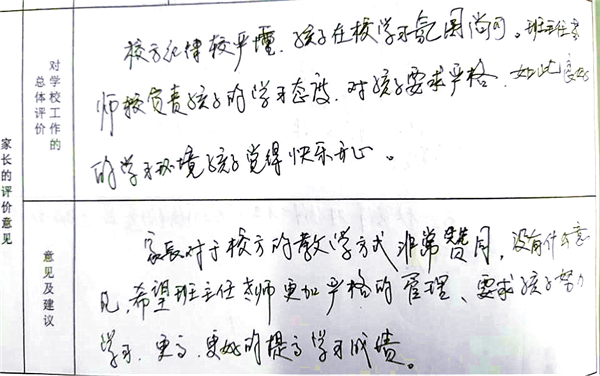 家长的评价意见
对学校工作的
总体评价
校方纪律较严厘、孩子在校学习氛围尚可。班主任老
师较负责孩子的学习态度、对孩子要求严格、如此良好
的学习环境孩子觉得快乐开心。
意见及建议
家长对于校方的教学方式非常赞同,没有什么意
见,希望班主任老师更加严格的管理、要求孩子努力
学习、更高、更好的提高学习成绩。